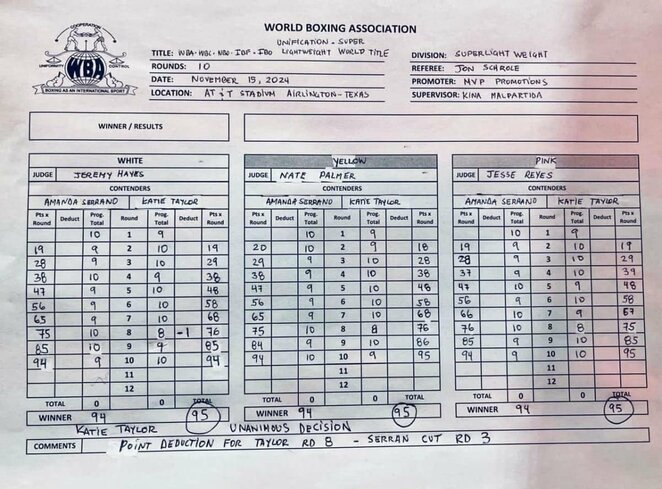 WORLD BOXING ASSOCIATION
COOPERATION
UNIFORMITY CONTROL
WBA
BOXING AS AN INTERNATIONAL SPORT
UNIFICATION - SUPER
TITLE: WBA-WBC-WBO-IBF-IBO LIGHTWEIGHT WORLD TITLE
ROUNDS: 10
DATE: NOVEMBER 15, 2024
LOCATION: AT&T STADIUM ARLINGTON-TEXAS
DIVISION: SUPERLIGHT WEIGHT
REFEREE: JON SCHROLE
PROMOTER: MVP PROMOTIONS
SUPERVISOR: KINA MALPARTIDA
WINNER / RESULTS
WHITE YELLOW PINK
JUDGE JEREMY HAYES JUDGE NATE PALMER JUDGE JESSE REYES
CONTENDERS CONTENDERS CONTENDERS
AMANDA SERRANO KATIE TAYLOR AMANDA SERRANO KATIE TAYLOR AMANDA SERRANO KATIE TAYLOR
Pts x Round Deduct Prog. Total Round Prog. Total Deduct Pts x Round Pts x Round Deduct Prog. Total Round Prog. Total Deduct Pts x Round Pts x Round Deduct Prog. Total Round Prog. Total Deduct Pts x Round
10 1 9 10 1 9 10 1 9
19 9 2 10 19 20 10 2 9 18 19 9 2 10 19
28 9 3 10 29 29 9 3 10 28 28 9 3 10 29
38 10 4 9 38 38 9 4 10 38 37 9 4 10 39
47 9 5 10 48 47 9 5 10 48 47 10 5 9 48
56 9 6 10 58 56 9 6 10 58 56 9 6 10 58
65 9 7 10 68 65 9 7 10 68 66 10 7 9 67
75 10 8 8 -1 76 75 10 8 8 76 75 10 8 8 75
85 10 9 9 85 84 9 9 10 86 85 9 9 10 85
94 9 10 10 94 94 10 10 9 95 94 9 10 10 95
11 11 11
12 12 12
TOTAL 0 0 TOTAL TOTAL 0 0 TOTAL TOTAL 0 0 TOTAL
WINNER 94 95 WINNER 94 95 WINNER 94 95
KATIE TAYLOR UNANIMOUS DECISION
COMMENTS POINT DEDUCTION FOR TAYLOR RD 8 - SERRAN CUT RD 3